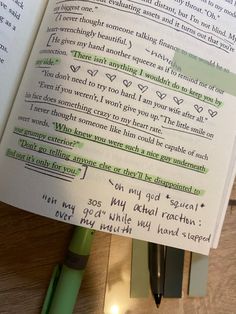 evaluating assets and it turns out that you're
my biggest one."
I never thought someone talking finance would be so
heart-wrenchingly beautiful.
He gives my hand another squeeze as if to remind me of our
"There isn't anything I wouldn't do to keep you by
my side."
"You don't need to try too hard. I am your wife after all."
"Even if you weren't, I won't give you up." The little smile on
his face does something crazy to my heart rate.
I never thought someone like him could be capable of such
sweet words. "Who knew you were such a nice guy underneath
our grumpy exterior?"
"Don't go telling anyone else or they'll be disappointed to
find out it's only for you."
oh my god *squeal*
305 my actual reaction:
"oh my god" while my hand slapped
over my mouth